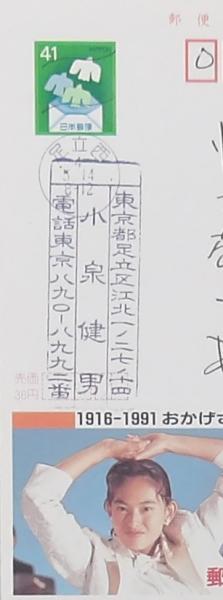 郵便
41
NIPPON
日本郵便
足立西
14
8 12
東京都足立区江北一ノ二七ノ十四
小泉健男
電話東京八九〇-八九九二番
売価
36円
1916-1991 おかげさ
郵